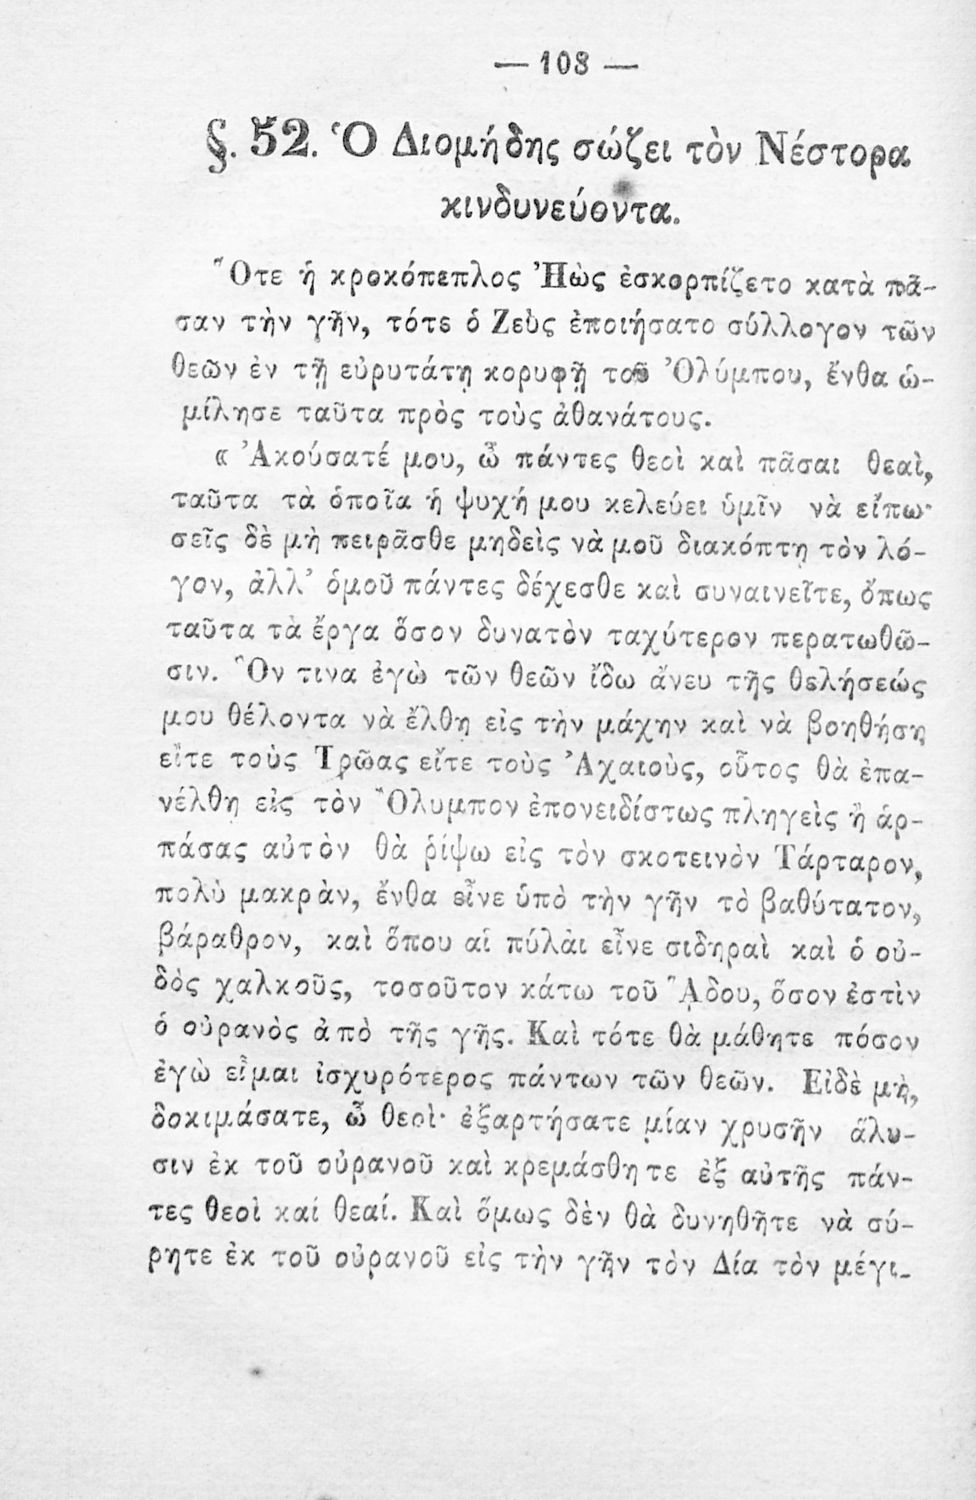 — 108 —
§. 52. Ὁ Διομήδης σώζει τὸν Νέστορα
κινδυνεύοντα.
Ὅτε ἡ κροκόπεπλος Ἠὼς ἐσκορπίζετο κατὰ πᾶ-
σαν τὴν γῆν, τότε ὁ Ζεὺς ἐποιήσατο σύλλογον τῶν
θεῶν ἐν τῇ εὐρυτάτῃ κορυφῇ τοῦ Ὀλύμπου, ἔνθα ὡ-
μίλησε ταῦτα πρὸς τοὺς ἀθανάτους.
« Ἀκούσατέ μου, ὦ πάντες θεοὶ καὶ πᾶσαι θεαὶ,
ταῦτα τὰ ὁποῖα ἡ ψυχή μου κελεύει ὑμῖν νὰ εἴπω·
σεῖς δὲ μὴ πειρᾶσθε μηδεὶς νὰ μοῦ διακόπτῃ τὸν λό-
γον, ἀλλ’ ὁμοῦ πάντες δέχεσθε καὶ συναινεῖτε, ὅπως
ταῦτα τὰ ἔργα ὅσον δυνατὸν ταχύτερον περατωθῶ-
σιν. Ὅν τινα ἐγὼ τῶν θεῶν ἴδω ἄνευ τῆς θελήσεώς
μου θέλοντα νὰ ἔλθῃ εἰς τὴν μάχην καὶ νὰ βοηθήσῃ
εἴτε τοὺς Τρῶας εἴτε τοὺς Ἀχαιοὺς, οὗτος θὰ ἐπα-
νέλθῃ εἰς τὸν Ὄλυμπον ἐπονειδίστως πληγεὶς ἢ ἁρ-
πάσας αὐτὸν θὰ ῥίψω εἰς τὸν σκοτεινὸν Τάρταρον,
πολὺ μακρὰν, ἔνθα εἶνε ὑπὸ τὴν γῆν τὸ βαθύτατον,
βάραθρον, καὶ ὅπου αἱ πύλαι εἶνε σιδηραὶ καὶ ὁ οὐ-
δὸς χαλκοῦς, τοσοῦτον κάτω τοῦ ᾍδου, ὅσον ἐστὶν
ὁ οὐρανὸς ἀπὸ τῆς γῆς. Καὶ τότε θὰ μάθητε πόσον
ἐγὼ εἶμαι ἰσχυρότερος πάντων τῶν θεῶν. Εἰδὲ μὴ,
δοκιμάσατε, ὦ θεοὶ· ἐξαρτήσατε μίαν χρυσῆν ἅλυ-
σιν ἐκ τοῦ οὐρανοῦ καὶ κρεμάσθητε ἐξ αὐτῆς πάν-
τες θεοὶ καί θεαί. Καὶ ὅμως δὲν θὰ δυνηθῆτε νὰ σύ-
ρητε ἐκ τοῦ οὐρανοῦ εἰς τὴν γῆν τὸν Δία τὸν μέγι-